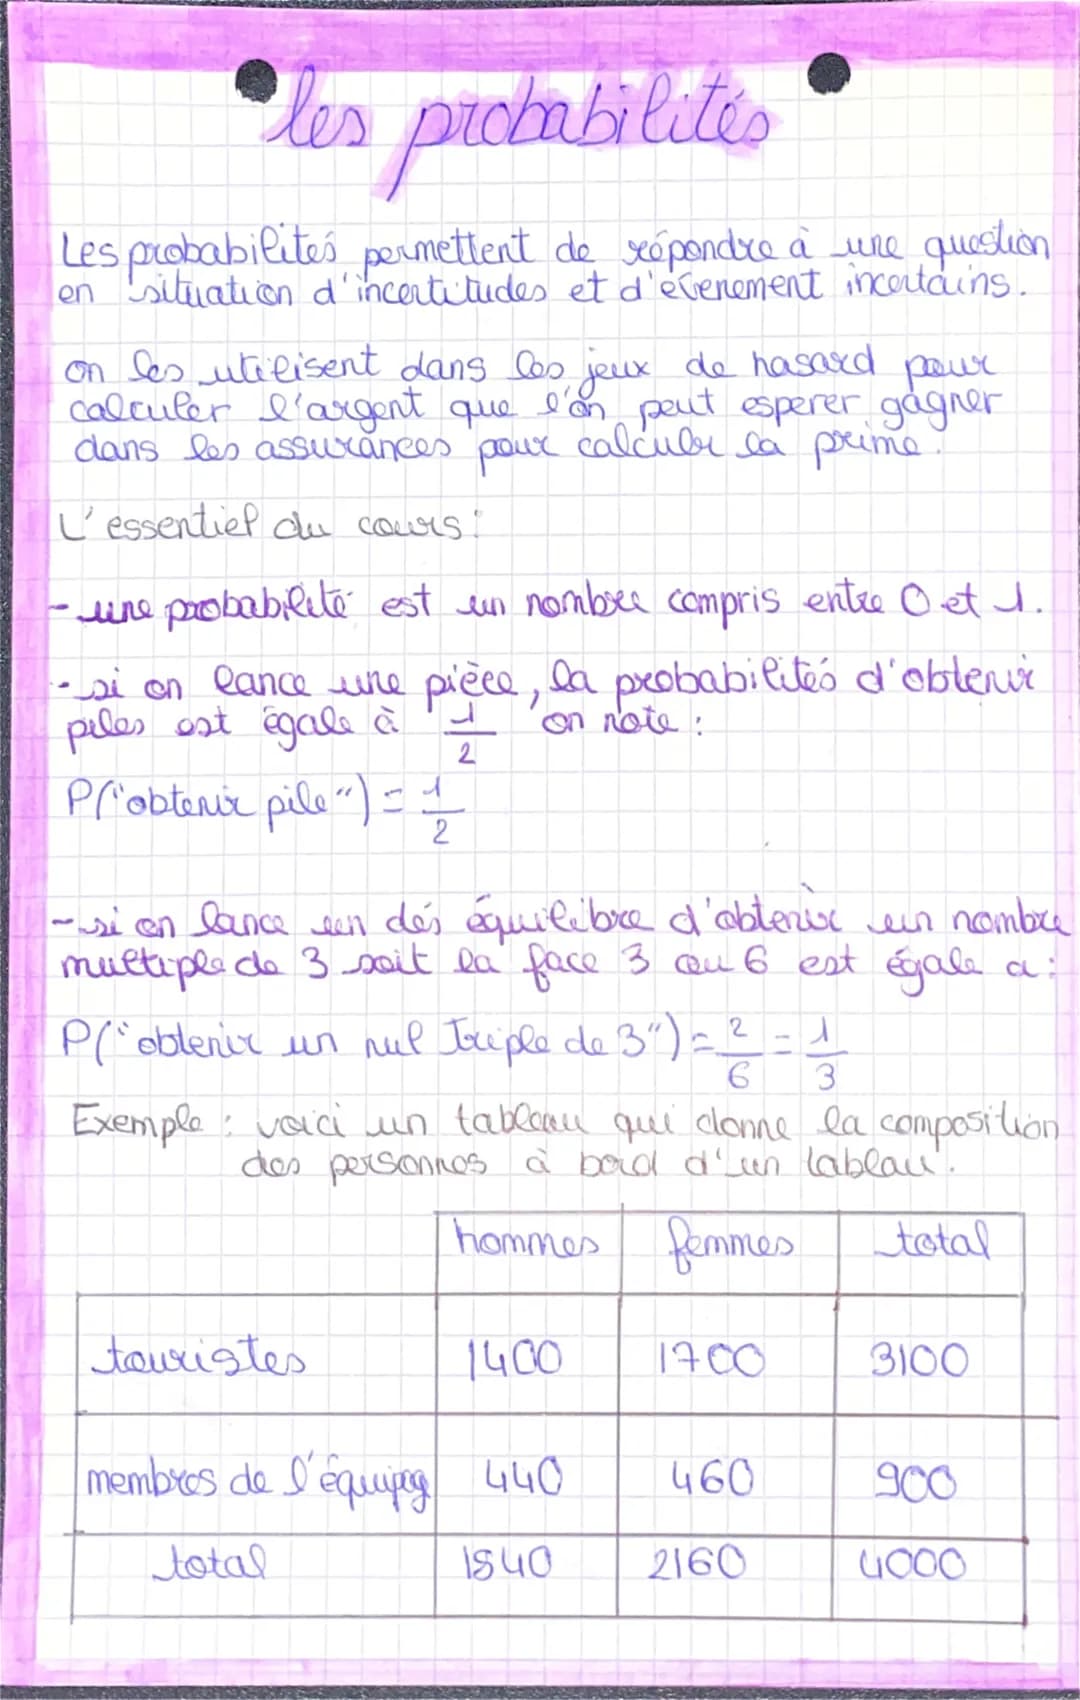 les probabilités
Les probabilités permettent de répondre à une question
en situation d'incertitudes et d'évenement incertains.
on les utilisent dans les jeux de hasard pour
calculer l'argent que l'on peut esperer gagner
dans les assurances pour calculer la prime.
L'essentiel du cours :
- une probabilité est un nombre compris entre 0 et 1.
- si on lance une pièce, la probabilités d'obtenir
piles est égale à 1/2 on note :
P("obtenir pile") = 1/2
- si on lance un dés équilibre d'obtenir un nombre
multiple de 3 soit la face 3 ou 6 est égale a :
P("obtenir un nul triple de 3") = 2/6 = 1/3
Exemple : voici un tableau qui donne la composition
des personnes à bord d'un tableau.
hommes femmes total
touristes 1400 1700 3100
membres de l'équipag 440 460 900
total 1840 2160 4000